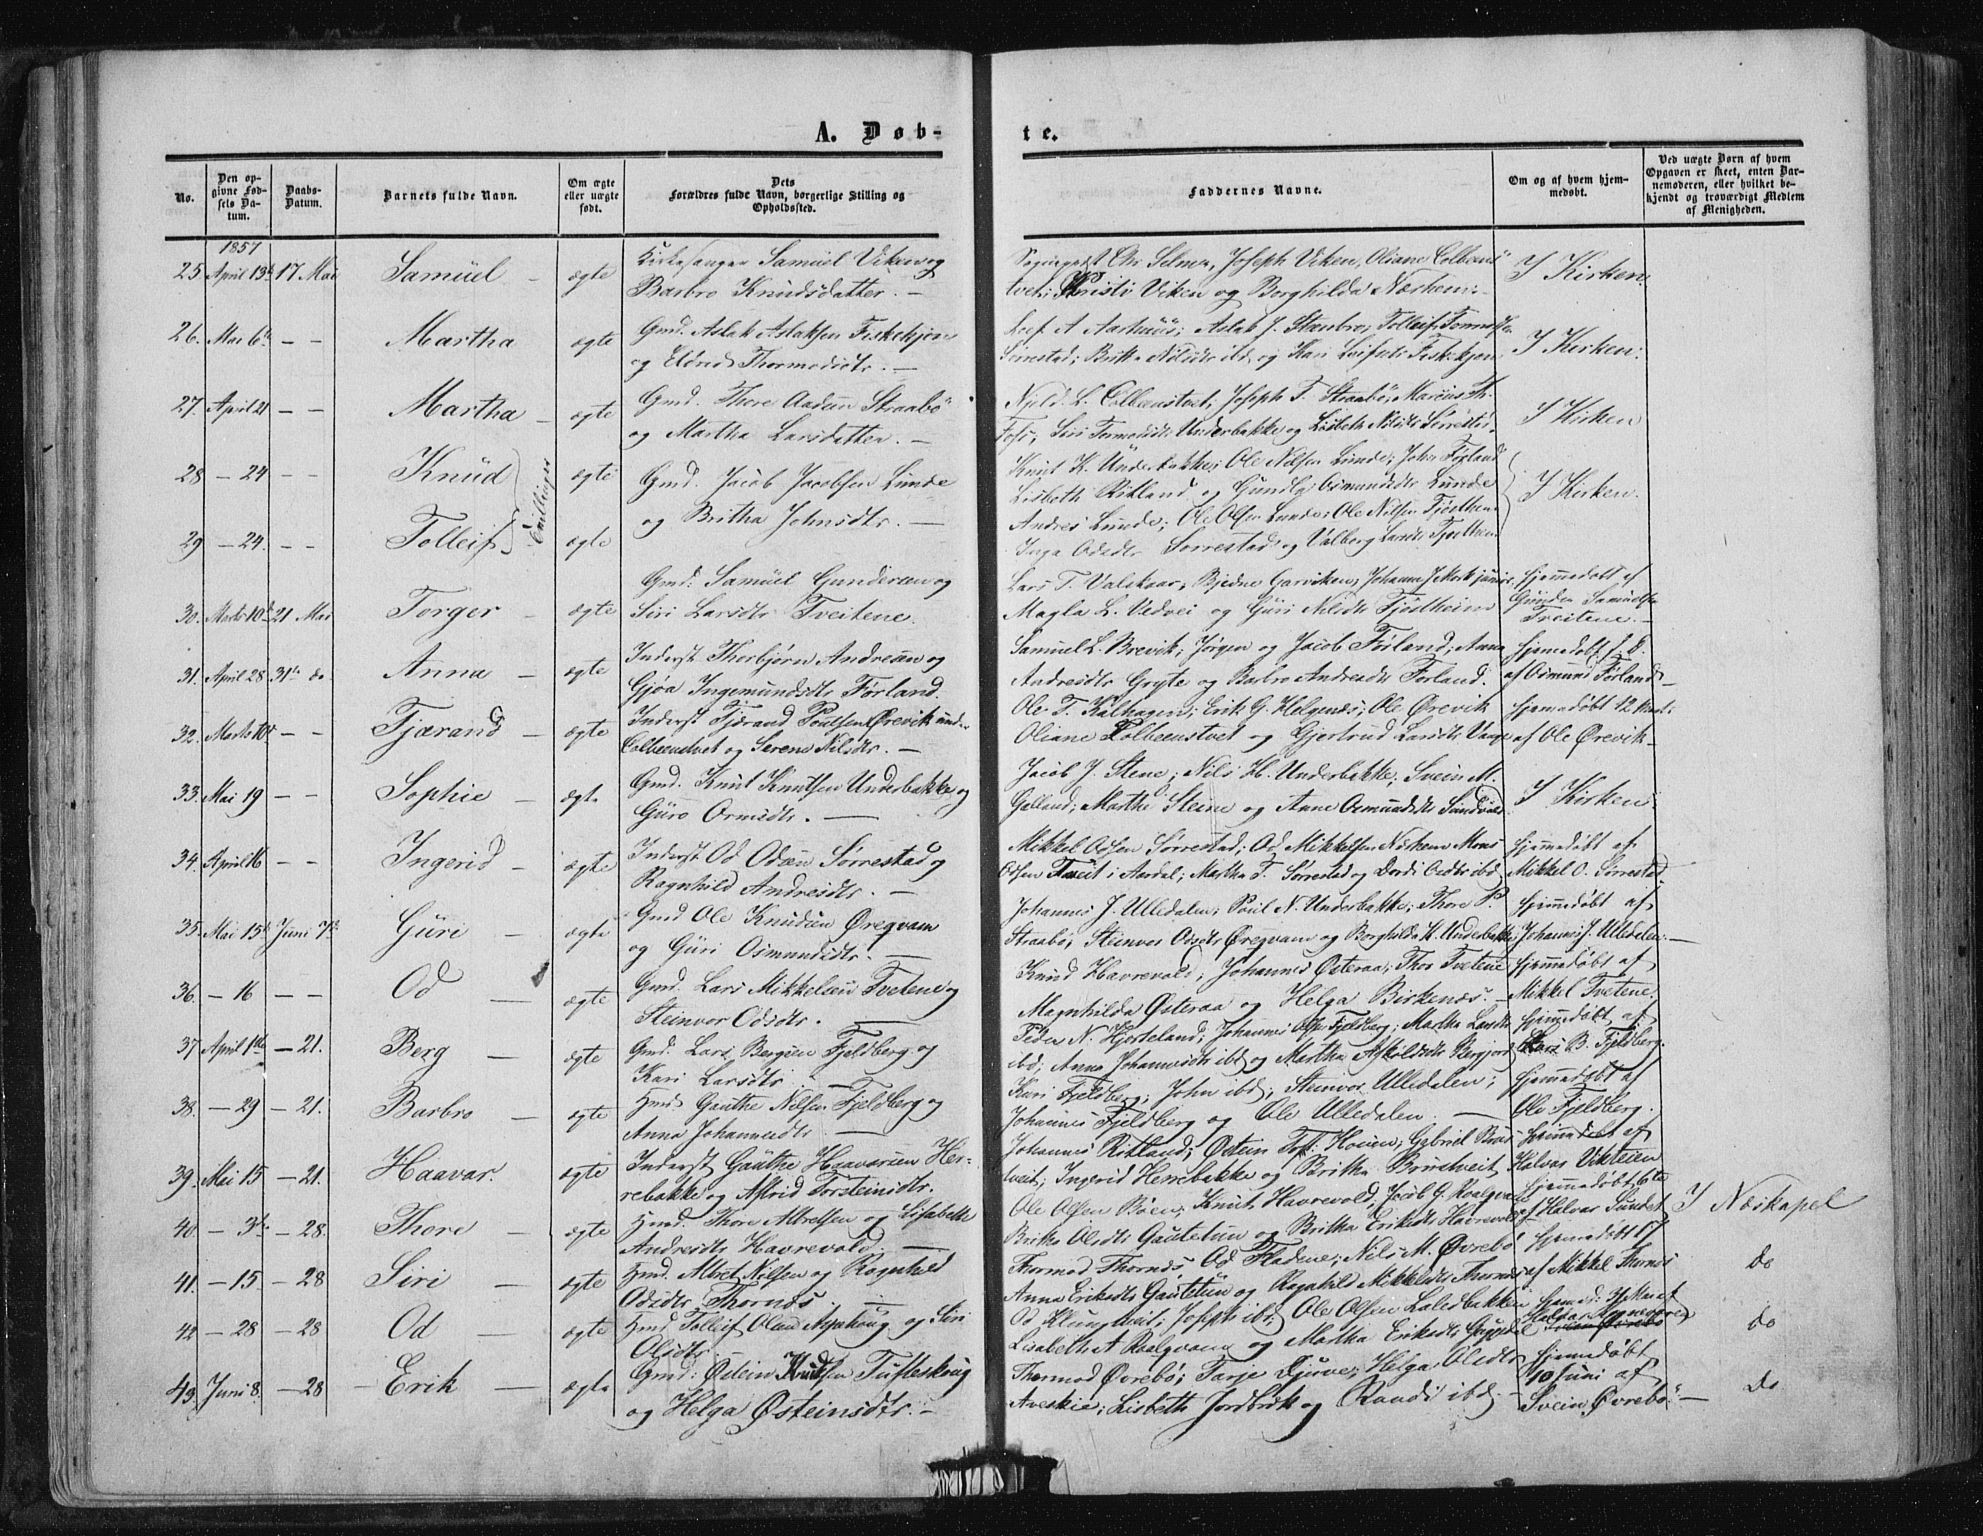 A. Døb-
te.
No.
Den opgivne Fødsels Datum.
Daabs-Datum.
Barnets fulde Navn.
Om ægte eller uægte født.
Dets Forældres fulde Navn, borgerlige Stilling og Opholdssted.
Faddernes Navne.
Om og af hvem hjemmedøbt.
Ved uægte Børn af hvem Opgaven er skeet, enten Barnemoderen, eller hvilket bekjendt og troværdigt Medlem af Menigheden.
1857
25 April 13de 17 Mai Samüel - ægte Kirkesanger Samüel Viken og
Barbro Knudsdatter. -
Chr Selmer, Joseph Viken, Oliane Colbens
tvet; Kristi Viken og Borghilda Næshem. I Kirken
26. Mai 6te - - Martha ægte Gmd. Aslak Aslaksen Fiskekjøn
og Eldrid Thormodsdtr. -
Leif A Aarhuus; Aslak J. Stenbro; Tolleif
Sørrestad; Britha Nilsdtr ibd og Kari Leifsdtr Fiskekjøn I Kirken.
27. April 21 - - Martha - ægte Gmd. Thore Aadsen Straabø
og Martha Larsdatter. -
Njeld L. Colbenstvet, Joseph T. Straabø, Marcus Th.
Fosi; Siri Tormodsdtr Underbakke og Lisbeth Nilsdtr Sørrestad. I Kirken
28 - 24 - - Knud Tvillinger ægte Gmd. Jacob Jacobsen Lunde
og Britha Johnsdtr. -
Knut K. Underbakke; Ole Nilsen Lunde; John Førland
Lisbeth Ritland og Gunla Osmundsdtr Lunde I Kirken.
29 - 24. - - Tolleif ægte
Andres Lunde; Ole Olsen Lunde; Ole Nilsen Fjøsthem
Inga Odsdtr Sørrestad og Valberg Larsdtr Fjøsthem
30. Marts 10de 21 Mai Torger - ægte Gmd. Samüel Gundersen og
Siri Larsdtr Tveitene.
Lars T. Valskaar; Bjedne Garviken; Johannes J. Mork junior
Magla L. Vedvei og Güri Nilsdtr Fjøstheim
hjemmedøbt af
Gunder Samuelsen
Tveitene. -
31. April 28 31te do Anna - ægte Inderst Thorbjørn Andresen og
Gjøa Ingemundsdtr Førland.
Samuel L. Brevik; Jørgen og Jacob Førland; Anna
Andresdtr Gryte og Barbro Andresdtr Førland.
hjemmedøbt
af Osmund Førland -
32. Marts 10de - - Tjærand - ægte Inderst Tjærand Poulsen Ørevik under
Colbenstvet og Serene Nilsdtr. -
Ole T. Kalhagen; Erik G. Helgenæs; Ole Ørevik
Oliane Colbenstvet og Gjertrud Larsdtr Vaage
hjemmedøbt 12 Marts
af Ole Ørevik -
33. Mai 19 - - Sophie - ægte Gmd. Knut Knutsen Underbakke og
Güro Ormsdtr. -
Jacob J. Stene; Nils H. Underbakke; Svein M.
Gælland; Martha Steine og Anne Osmundsdtr Sandvik I Kirken
34. April 16 - - Ingerid - ægte Inderst Od Odsen Sørrestad og
Ragnhild Andresdtr. -
Mikkel Odsen Sørrestad; Od Mikkelsen Næshem Mons
Odsen Tveit i Aardal; Martha T. Sørrestad og Dordi Oddsdtr ibd
hjemmedøbt af
Mikkel O. Sørrestad.
35. Mai 15de Juni 7de Güri - ægte Gmd Ole Knudsen Øregvam
og Güri Osmundsdtr. -
Johannes J. Ulledalen; Poul N. Underbakke; Thore P.
Straabø; Steinvor Odsdtr Øregvam og Borghilda K. Underbakke
hjemmedøbt af
Johannes J. Ulledalen. -
36. - 16 - - Od - ægte Gmd. Lars Mikkelsen Tvetene og
Steinvor Odsdtr. -
Knud Havrevold; Johannes Østeraa; Thor Tvetene
Magnhilda Østeraa og Helga Birkenæs.
hjemmedøbt af
Mikkel Tvetene.
37 April 1ste - 21. Berg - ægte Gmd. Lars Bergsen Fjeldberg og
Kari Larsdtr
Peder N. Hjorteland; Johannes Olsen Fjeldberg; Martha Larsdtr
ibd; Anna Johannesdtr ibd og Martha Askildsdtr Bergjord
hjemmedøbt af
Lars B. Fjeldberg.
38. - 29 - 21. Barbro - ægte Hmd Gauthe Nilsen Fjeldberg og
Anna Johannesdtr -
Kari Fjeldberg; John ibd; Steinvor Ulledalen;
Johannes Fjeldberg og Ole Ulledalen. -
hjemmedøbt af
Ole Fjeldberg.
39. Mai 15 - 21. Haavar. ægte Inderst Gauthe Haavarsen Her-
rebakke og Astrid Torsteinsdtr.
Johannes Ritland; Østein Hoien; Gabriel Brus
tveit; Ingerid Herrebakke og Britha Brustveit
hjemmedøbt af
Halvar
40. - 3de - 28. Thore - ægte Hmd. Thore Albretsen og Lisabeth
Andresdtr Havrevold. -
Ole Olsen Bøen; Knut Havrevold, Jacob G. Roalqvam
Britha Olsdtr Gautetun og Britha Eriksdtr Havrevold
hjemmedøbt 6te
af Halvar Sundet I Næskapel
41. - 15 - 28 Siri - ægte Hmd. Albret Nilsen og Ragnhild
Odsdtr Thornæs. -
Thormod Thornæs Od Fladene; Nils M. Øvrebø
Anna Eriksdtr Gautetun og Ragnhild Mikkelsdtr Thornæs
hjemmedøbt 17
af Mikkel Thornæs do
42 - 28 - 28 Od - ægte Hmd Tolleif Olsen Asjahoug og Siri
Olsdtr
Od Klungtveit; Joseph ibd; Ole Olsen Laledbakken
Lisabeth A Roalqvam og Martha Eriksdtr
do
43. Juni 8. - 28 - Erik - ægte Gmd: Østein Knudsen Tufteskoug
og Helga Østeinsdtr. -
Thormod Øvrebø; Tarje Djuve; Helga Olsdtr
Aveskie; Lisbeth Jordbrek og Randi ibd. -
hjemmedøbt
10 Juni af
Svein Øvrebø - Do